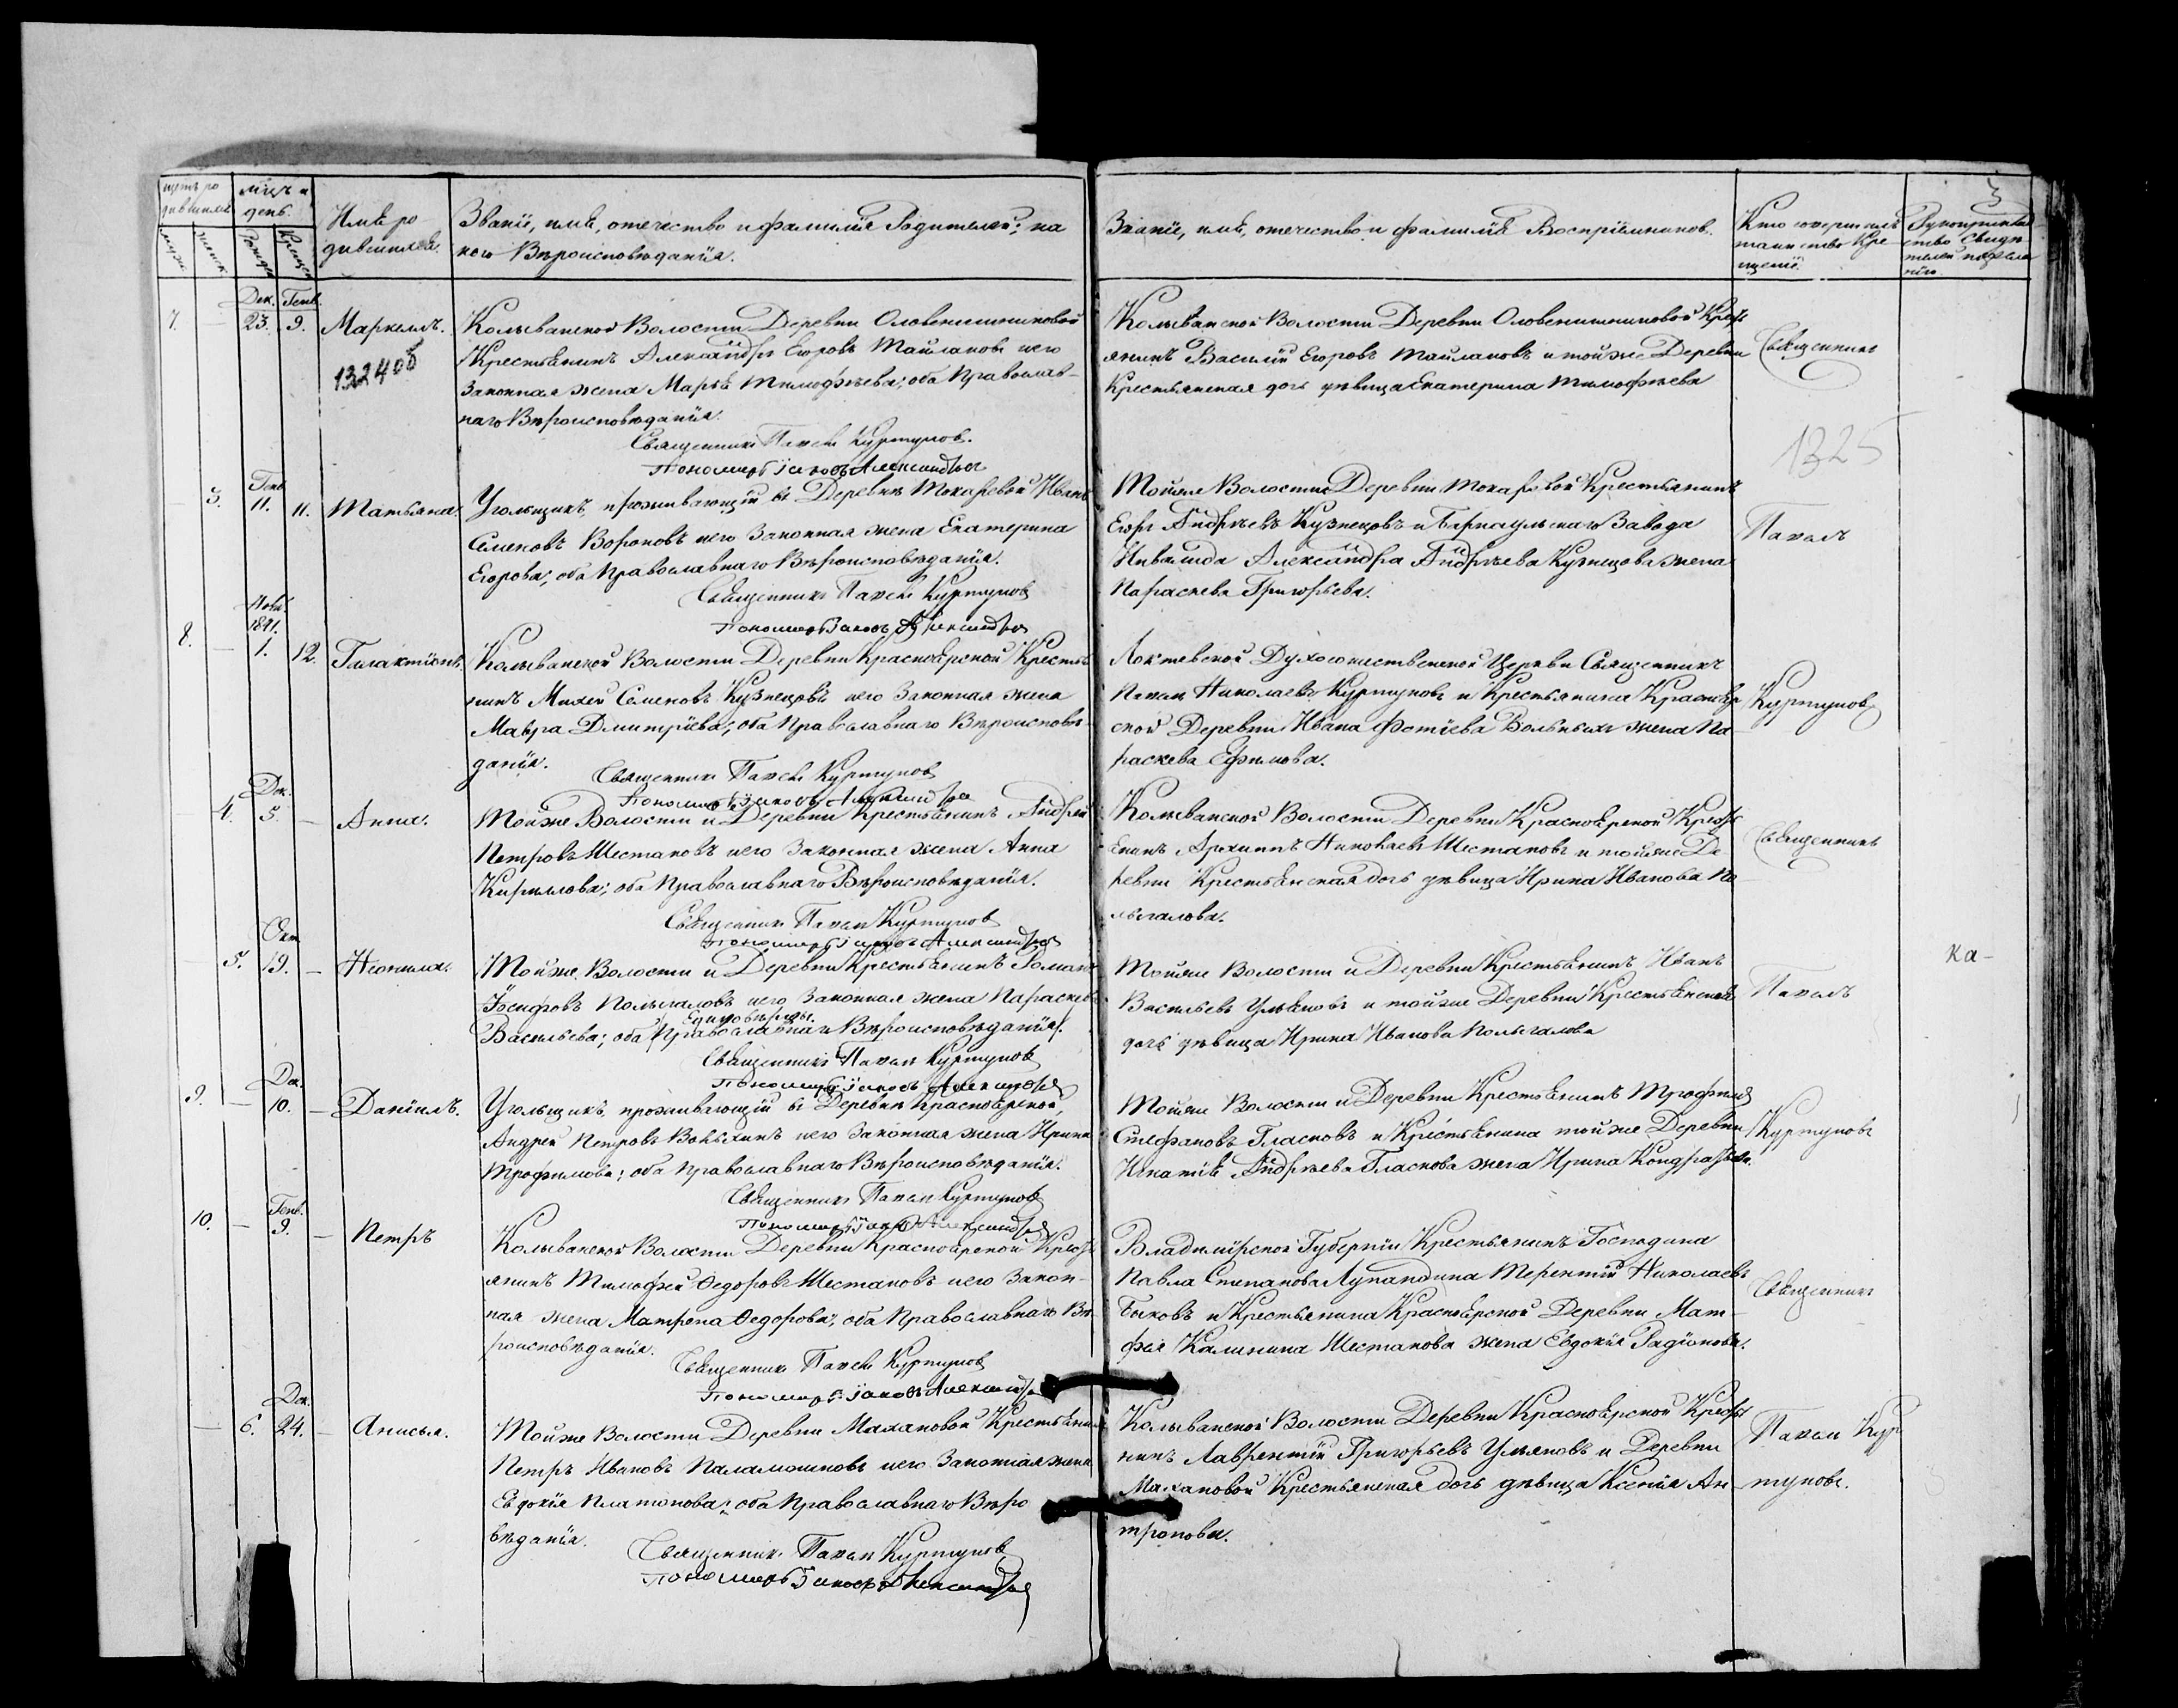 Имѣ ро
дившихся.
Званіе, имѣ, отечество и фамиліѧ Родителей; ка
кого Вѣроисповѣданія.
Званіе, имѣ, отечество и фамиліѧ Воспріемниковъ.
Кто совершилъ
таинство Кре
щенія.
3
мѣцъ и
день.
Дек. Генв.
7. — 23. 9. Маркеллъ.
132406
Колыванской Волости Деревни Оловенишниковой
Крестьянинъ Александръ Егоровъ и его
Законная жена Марья Тимофѣева; оба Православ-
наго Вѣроисповѣданія.
Священникъ Павелъ Куртуковъ.
Пономарь Іаковъ Александровъ
Колыванской Волости Деревни Оловенишниковой Крестья
янинъ Василій Егоровъ и тойже Деревни
Крестьянская дочь дѣвица Екатерина Тимофѣева
Священникъ
1325
Генв.
— 3. 11. 11. Татьяна.
Угольщикъ, проживающій въ Деревнѣ Токаревой Иванъ
Семеновъ Вороновъ и его Законная жена Екатерина
Егорова; оба Православнаго Вѣроисповѣданія.
Священникъ Павелъ Куртуковъ
Пономарь Іаковъ Александровъ
Тойже Волости Деревни Токаревой Крестьянинъ
Егоръ Андреевъ Кузнецовъ и Барнаульскаго Завода
Инвалида Александра Андреева Кузнецова жена
Параскева Григорьева.
Павелъ
Нояб.
1841.
8. — 1. 12. Галактіонъ.
Колыванской Волости Деревни Красноярской Крестья
нинъ Михей Семеновъ Кузнецовъ и его Законная жена
Мавра Дмитріева; оба Православнаго Вѣроисповѣ-
данія.
Священникъ Павелъ Куртуковъ
Пономарь Іаковъ Александровъ
Локтевской Духосошественской Церкви Священникъ
Павелъ Николаевъ Куртуковъ и Крестьянина Краснояр
ской Деревни Ивана Фотіева Вольныхъ жена Па
раскева Ефимова.
Куртуковъ
Дек.
4. 5. — Анна.
Тойже Волости и Деревни Крестьянинъ Андрей
Петровъ Шестаковъ и его Законная жена Анна
Кириллова; оба Православнаго Вѣроисповѣданія.
Священникъ Павелъ Куртуковъ
Пономарь Іаковъ Александровъ
Колыванской Волости Деревни Красноярской Кресть
янинъ Архиппъ Николаевъ Шестаковъ и тойже Де
ревни Крестьянская дочь дѣвица Ирина Иванова По
лыгалова.
Священникъ
Окт.
— 5. 19. — Неонила.
Тойже Волости и Деревни Крестьянинъ Романъ
Іосифовъ Полыгаловъ и его Законная жена Параскева
Единовѣрцы.
Васильева; оба Православнаго Вѣроисповѣданія.
Священникъ Павелъ Куртуковъ
Пономарь Іаковъ Александровъ
Тойже Волости и Деревни Крестьянинъ Иванъ
Васильевъ Ульяновъ и тойже Деревни Крестьянская
дочь дѣвица Ирина Иванова Полыгалова
Павелъ
ка-
Дек.
9. — 10. — Даніилъ.
Угольщикъ, проживающій въ Деревнѣ Красноярской,
Андрей Петровъ и его Законная жена Ирина
Трофимова; оба Православнаго Вѣроисповѣданія.
Священникъ Павелъ Куртуковъ
Пономарь Іаковъ Александровъ
Тойже Волости и Деревни Крестьянинъ Трофимъ
Стефановъ Гласковъ и Крестьянина тойже Деревни
Игнатія Андреева Гласкова жена Ирина Кондратьева.
Куртуковъ
Генв.
10. — 9. — Петръ
Колыванской Волости Деревни Красноярской Кресть
янинъ Тимофей Федоровъ Шестаковъ и его Закон-
ная жена Матрена Федорова; оба Православнаго Вѣ
роисповѣданія.
Священникъ Павелъ Куртуковъ
Пономарь Іаковъ Александровъ
Владимірской Губерніи Крестьянинъ Господина
Павла Степанова Лупандина Терентій Николаевъ
Быковъ и Крестьянина Красноярской Деревни Мат-
фея Калинина Шестакова жена Евдокія Радіонова.
Священникъ
Дек.
— 6. 24. — Анисья.
Тойже Волости Деревни Махановой Крестьянинъ
Петръ Ивановъ Паламошновъ и его Законная жена
Евдокія Платонова; оба Православнаго Вѣро
вѣданія.
Священникъ Павелъ Куртуковъ
Пономарь Іаковъ Александровъ
Колыванской Волости Деревни Красноярской Крестья
нинъ Лаврентій Григорьевъ Ульяновъ и Деревни
Махановой Крестьянская дочь дѣвица Ксенія Ан-
тропова.
Павелъ Кур
туковъ.